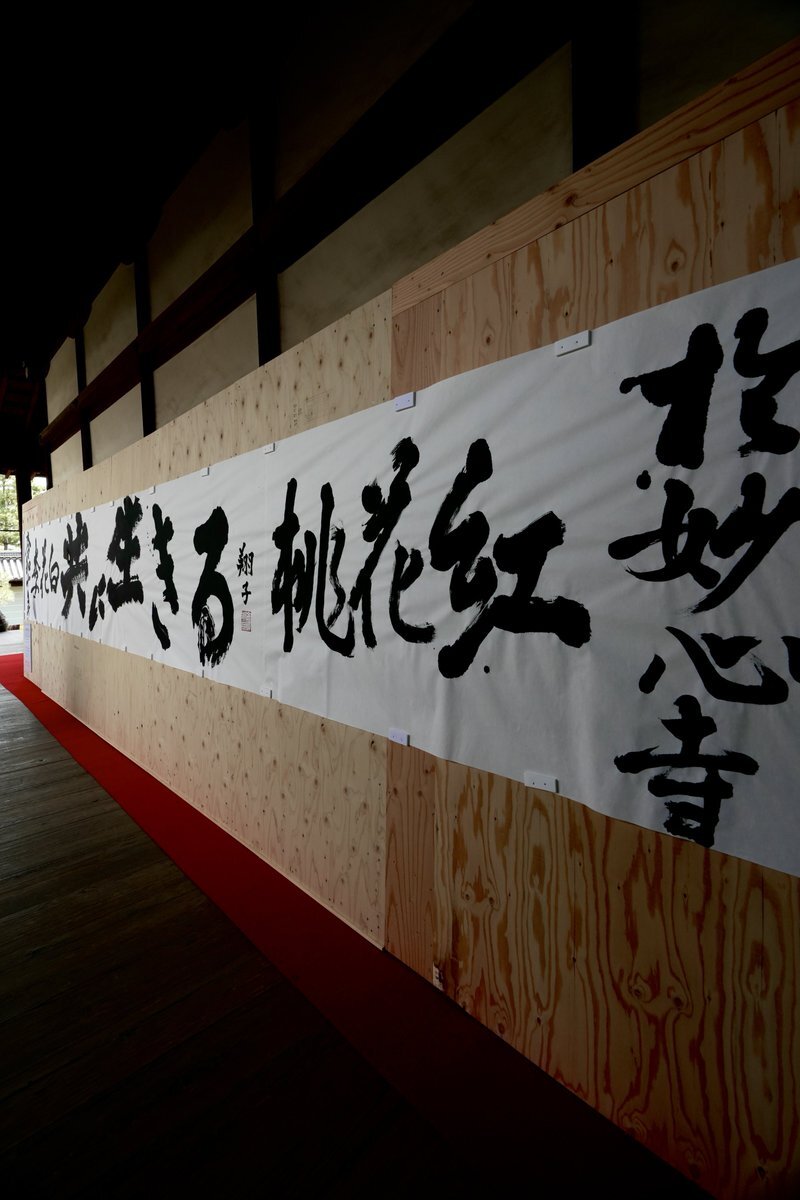 於妙心寺
桃花紅
共に生きる
翔子
李花白